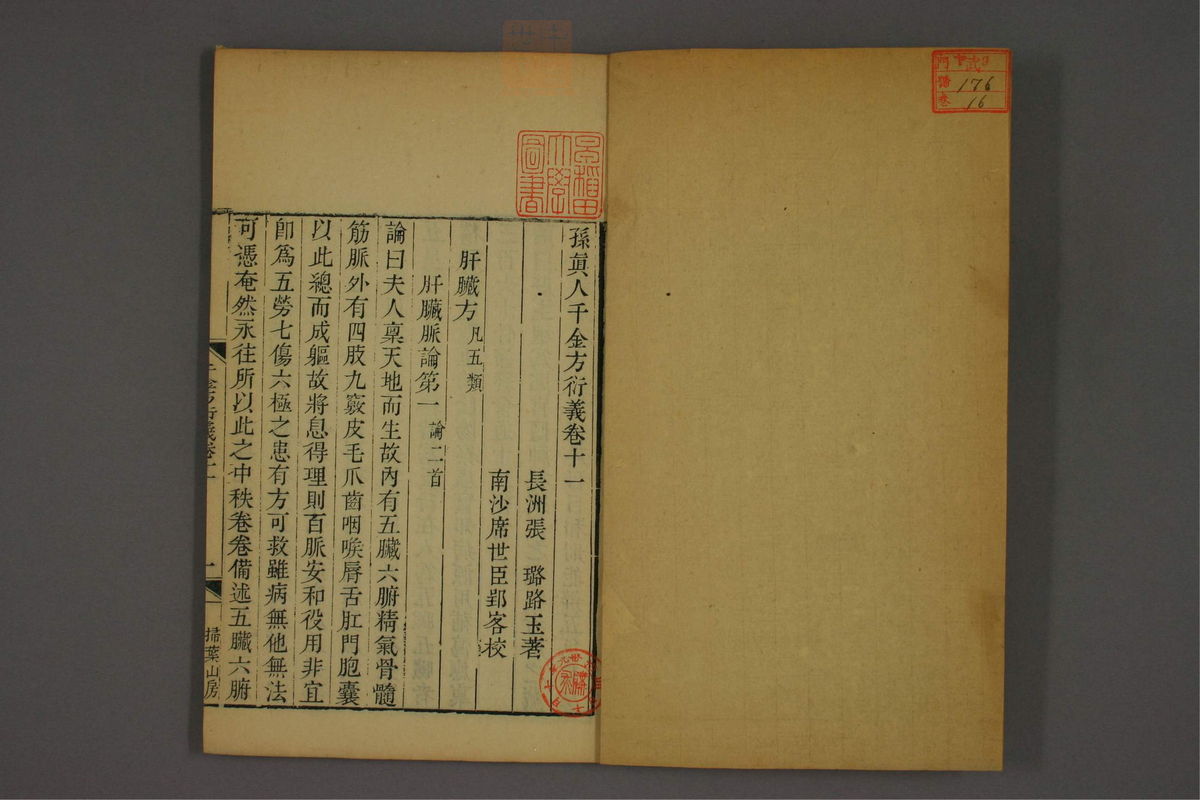 門
醫
卷
176
16
早稲田
大學
圖書
孫眞人千金方衍義卷十一
長洲張 璐路玉著
南沙席世臣郢客校
肝臟方凡五類
肝臟脈論第一論二首
論曰夫人稟天地而生故內有五臟六腑精氣骨髓
筋脈外有四肢九竅皮毛爪齒咽喉脣舌肛門胞囊
以此總而成軀故將息得理則百脈安和役用非宜
卽爲五勞七傷六極之患有方可救雖病無他無法
可憑奄然永往所以此之中秩卷卷備述五臟六腑
千金方衍義卷十一 一 掃葉山房